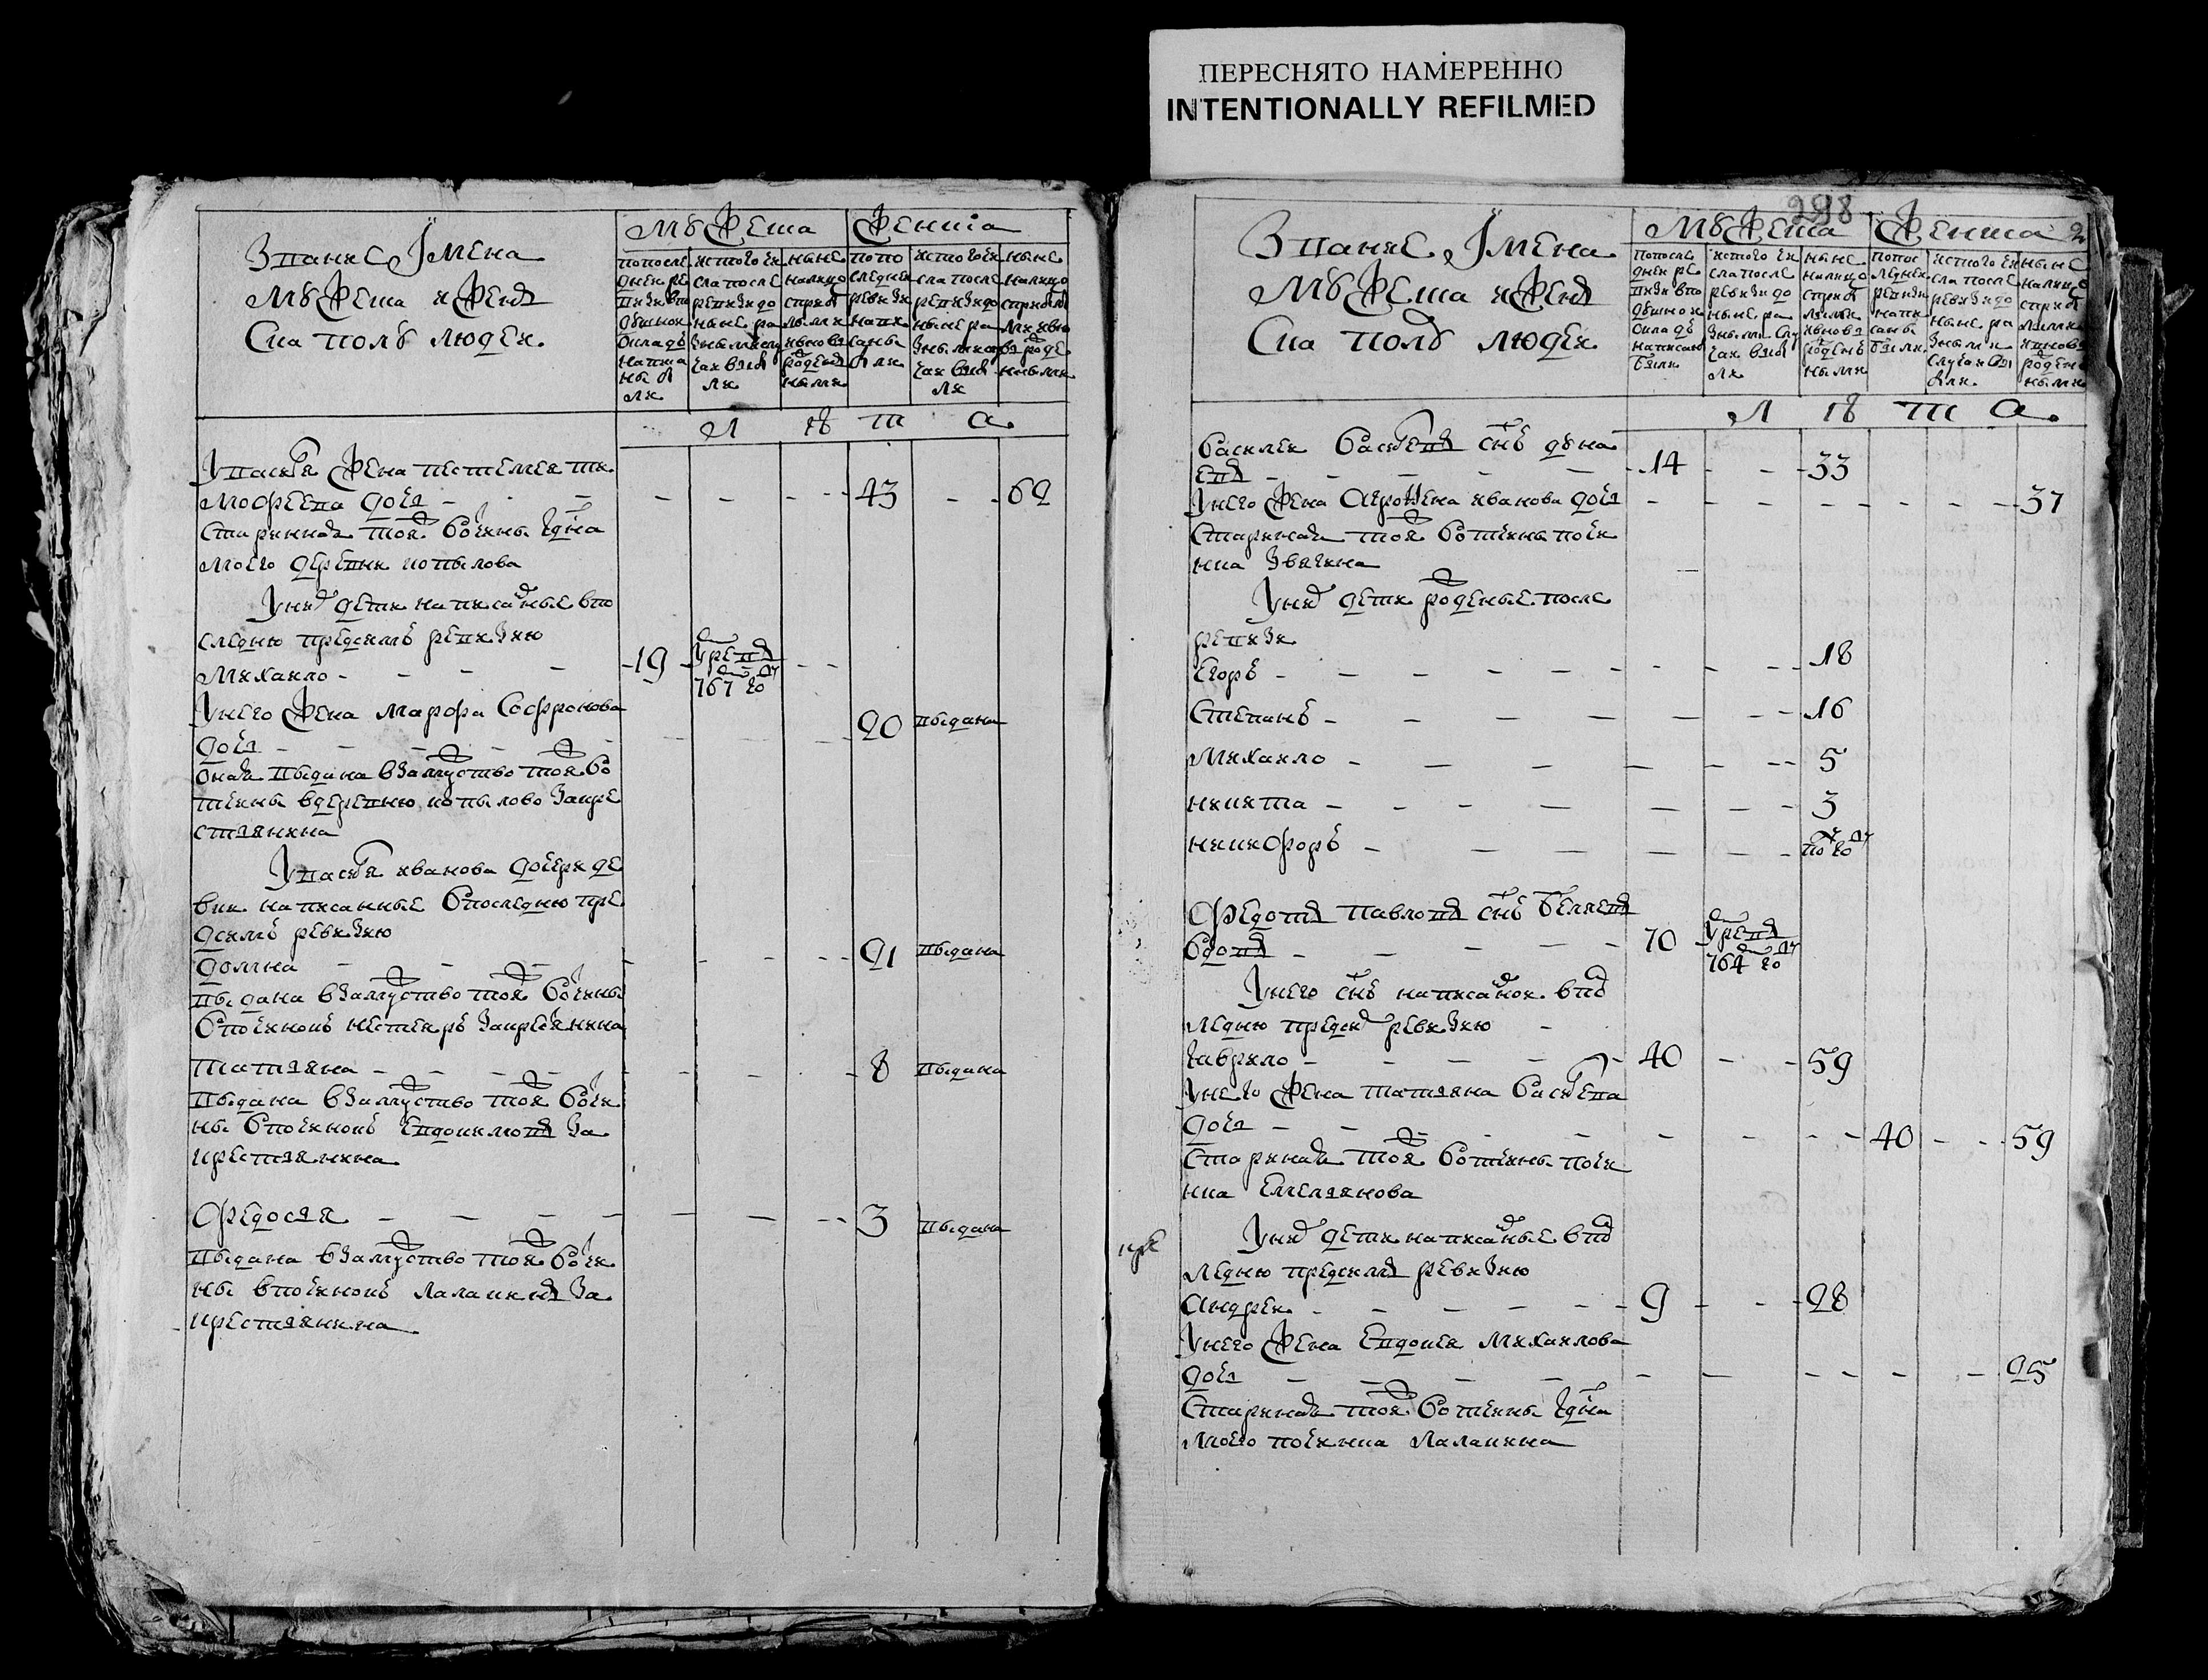 ПЕРЕСНЯТО НАМЕРЕННО
INTENTIONALLY REFILMED
298
Звание Имена
Мужеска и Женс
ка полу людей
Мужеска
Женска
по после
дней ре
визии в по
душной
оклад
написа
ны были
ис того чи
сла после
ревизии до
ныне ра
зными слу
чаи выбы
ли
ныне
налицо
с прибы
лыми
и вновь
рожден
ными
по по
следней
ревизии
напи
саны
были
ис того чи
сла после
ревизии до
ныне ра
зными слу
чаи выбы
ли
ныне
налицо
с прибы
лыми и вно
вь рожде
ными
Л ѣ т а
У Василья жена Пестемея Ти
мофеева дочь - - - - 43 - - 62
старинная той вотчины едина
моего деревни Копылова
У них дети написанные в по
следнюю пред сим ревизию
Михайло - - - 19 умре в
767 го
У него жена Марфа Софронова
дочь - - - 20 выдана
оная выдана в замужство той во
тчины в деревню Копылово за кре
стьянина
У Василья Иванова дочери де
вки написанные в последнюю пре
д сим ревизию
Домна - - - 21 выдана
выдана в замужство той вотчины
в починок Нестеръ за крестьянина
Татьяна - - - 8 выдана
выдана в замужство той вотчи
ны в починок Евдокимов за
крестьянина
Федосья - - - 3 выдана
выдана в замужство той вотчи
ны в починок Лалакин за
крестьянина
Звание Имена
Мужеска и Женс
ка полу людей
Мужеска
Женска
по после
дней ре
визии в по
душной
окладъ
написаны
были
ис того чи
сла после
ревизии до
ныне ра
зными слу
чаи выбы
ли
ныне
налицо
с прибы
лыми
и вновь
рожденъ
ными
по пос
ледней
ревизии
напи
саны
были
ис того чи
сла после
ревизии до
ныне ра
зными
случаи вы
были
ныне
налицо
с прибы
лыми
и вновь
рожден
ными
Л ѣ т а
Василей Васильев снъ Дуна
ев - - - 14 - - 33
У него жена Агрофена Иванова дочь - - - 37
старинная той вотчины почи
нка Звягина
У них дети рожденые после
ревизи
Егоръ - - - 18
Степанъ - - - 16
Михайло - - - 5
Никита - - - 3
Никифоръ - - - по го
Федот Павлов снъ Беляев
вдов - - - 70 умре в
764 го
У него снъ написаной в пос
леднюю пред сим ревизию -
Гаврило - - - 40 - - 59
У него жена Татьяна Васильева
дочь - - - 40 - - 59
старинная той вотчины почи
нка Емельянова
У них дети написаные в пос
леднюю пред сим ревизию
Андрей - - - 9 - - 28
У него жена Евдокея Михайлова
дочь - - - 25
старинная той вотчины едина
моего починка Лалакина